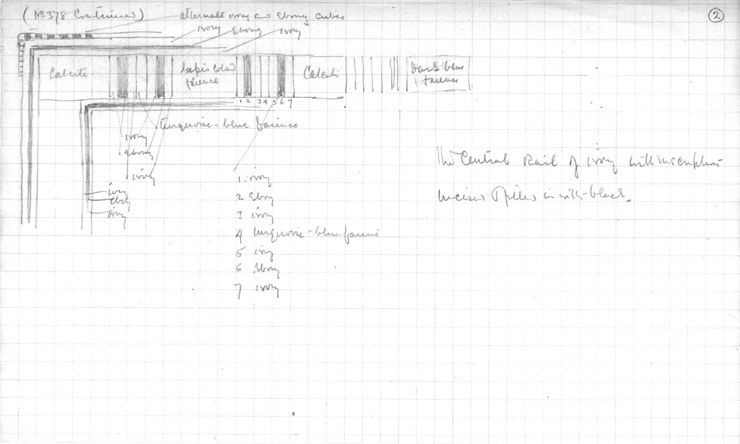 (No 378 Continued)
②
alternate ivory and ebony cubes
ivory ebony ivory
Calcite
lapis colour
faience
Calcite
dark blue
faience
1 2 3 4 5 6 7
turquoise-blue faience
ivory
ebony
ivory
ivory
ebony
ivory
1. ivory
2 ebony
3 ivory
4 turquoise-blue faience
5 ivory
6 ebony
7 ivory
The Central Rail of ivory with inscription
incised & filled in with black.